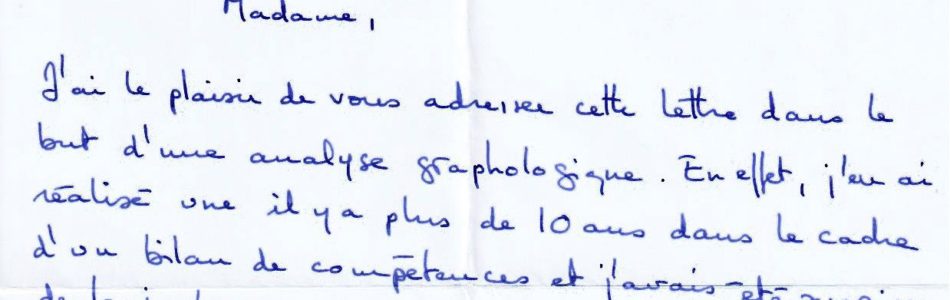 Madame,
J'ai le plaisir de vous adresser cette lettre dans le
but d'une analyse graphologique. En effet, j'en ai
réalisé une il y a plus de 10 ans dans le cadre
d'un bilan de compétences et j'avais été